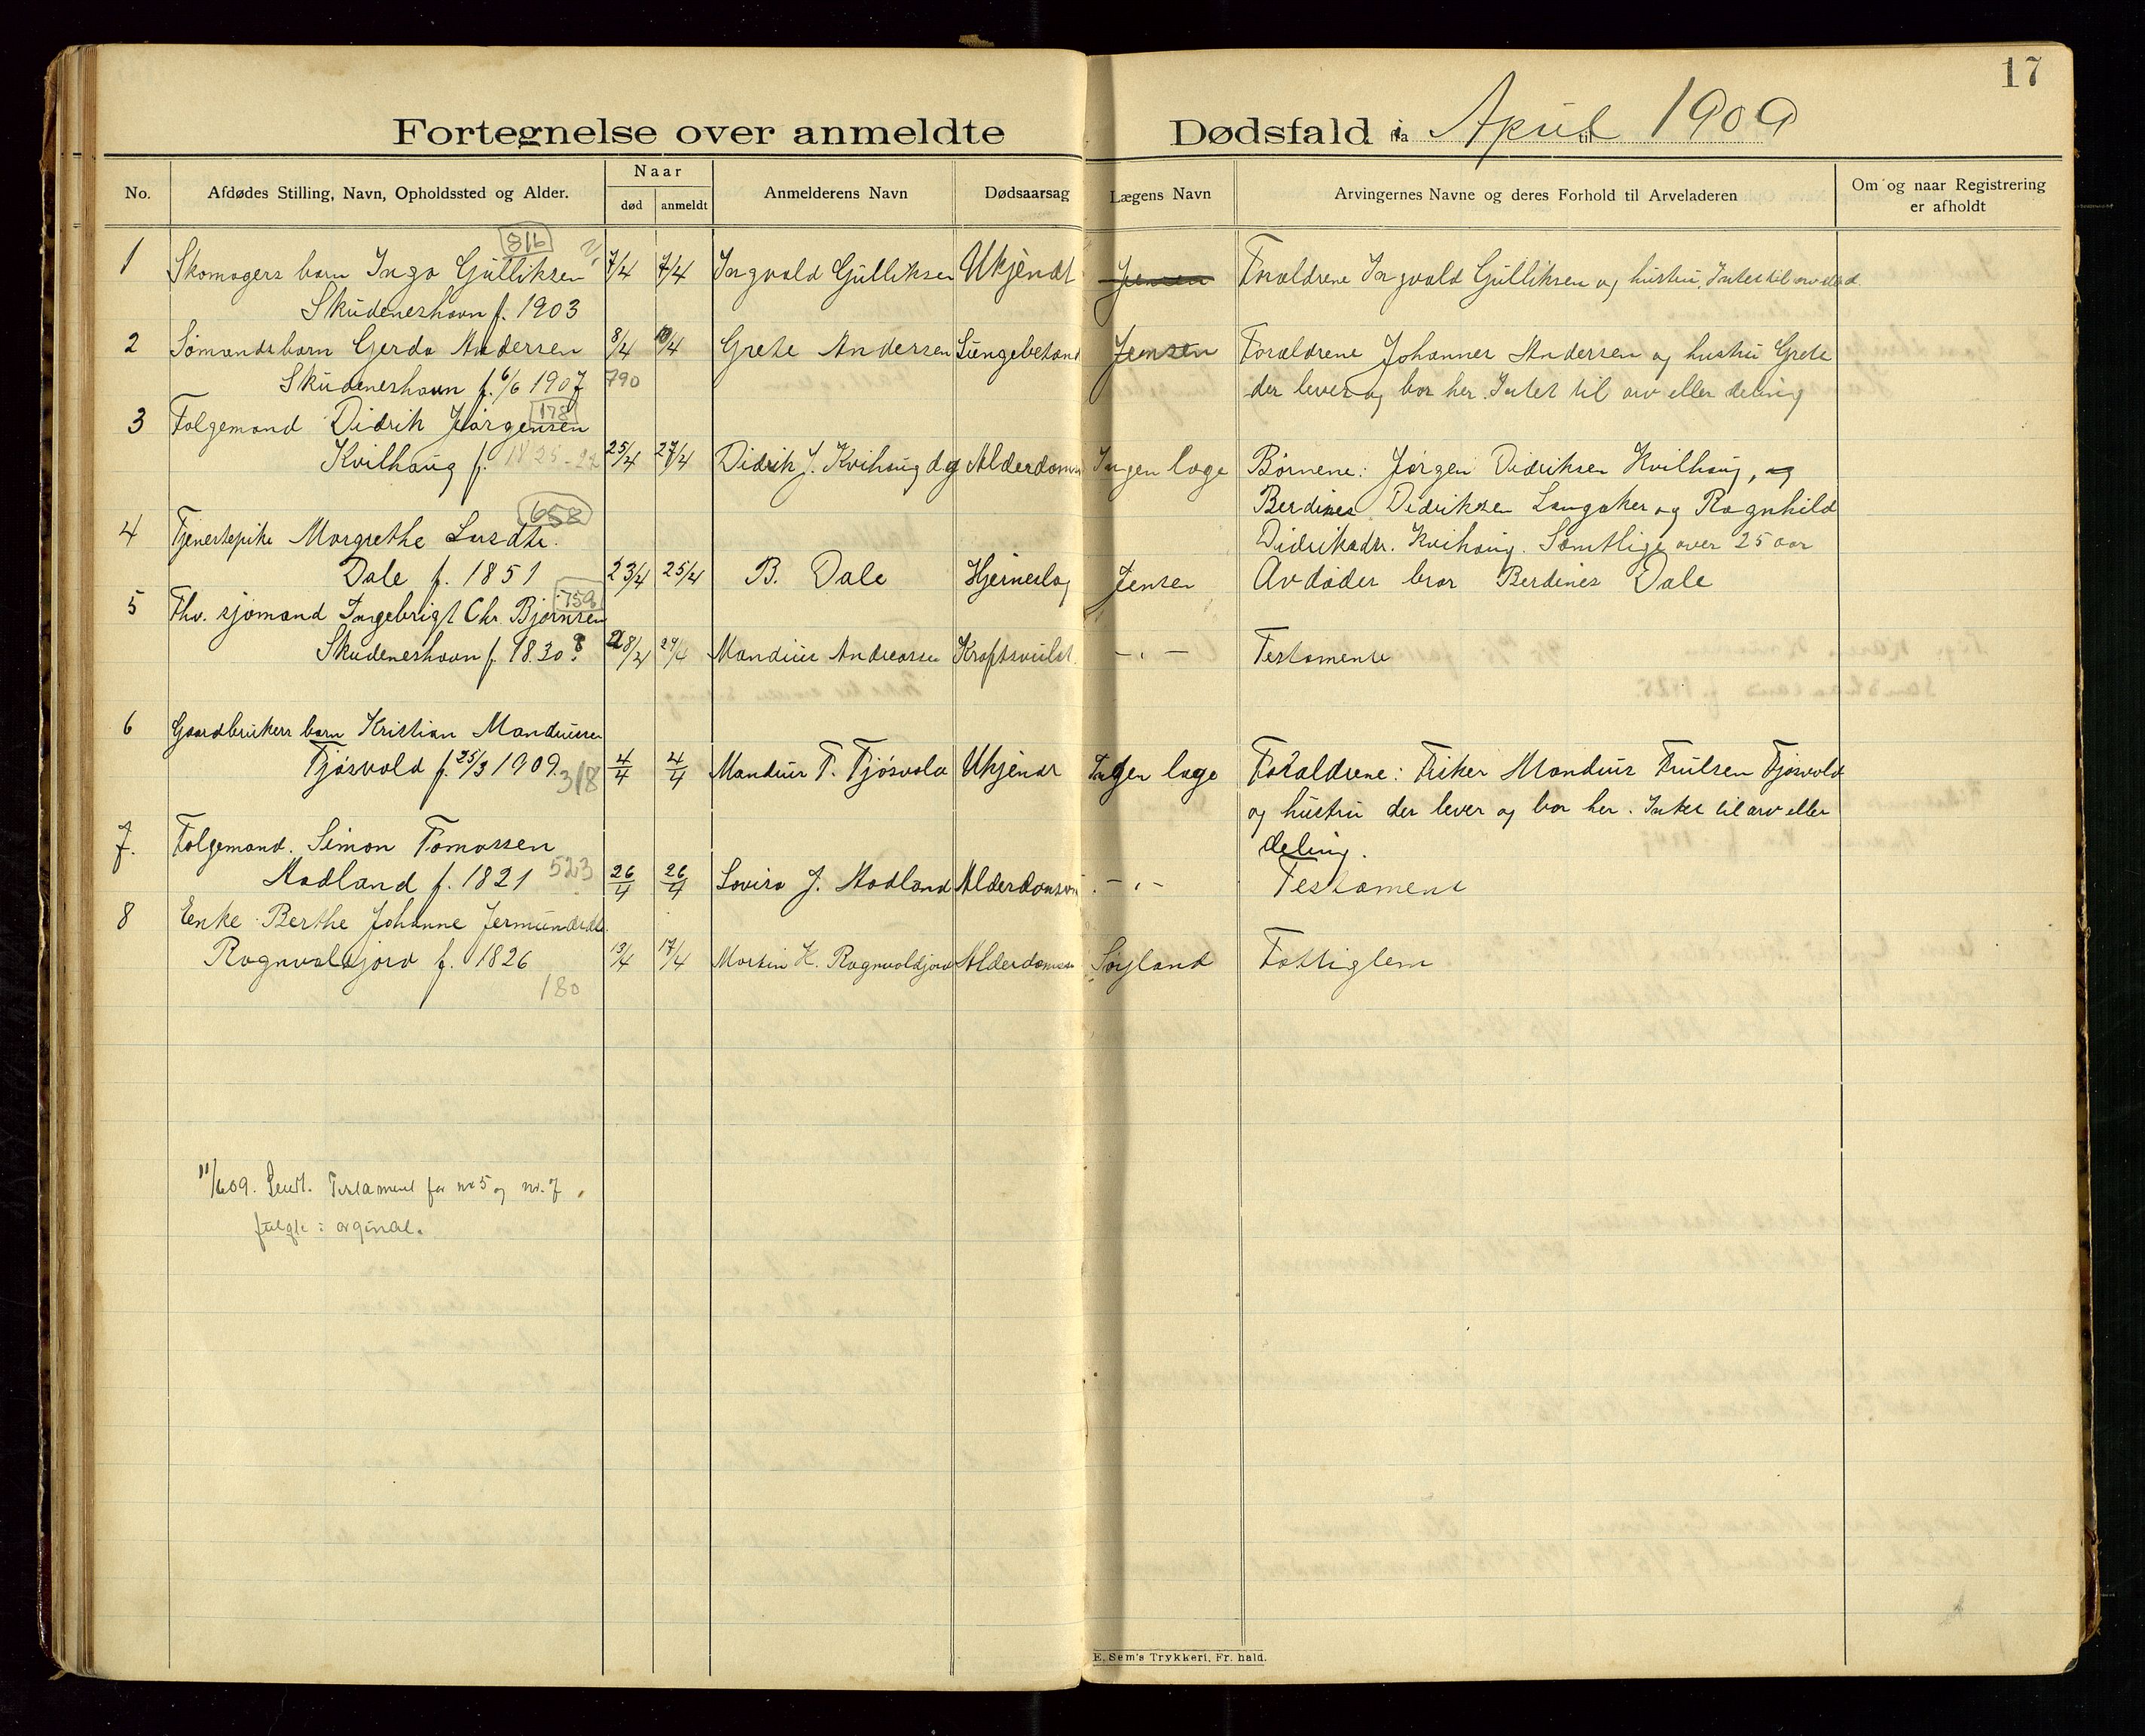 17
Fortegnelse over anmeldte Dødsfald i April 1909
No. Afdødes Stilling, Navn, Opholdssted og Alder. Naar død anmeldt Anmelderens Navn Dødsaarsag Lægens Navn Arvingernes Navne og deres Forhold til Arveladeren Om og naar Registrering er afholdt
816
1 Skomagers barn Inga Gulliksen 7/4 7/4 Ingvald Gulliksen Ukjendt Jensen Forældrene Ingvald Gulliksen og hustru. Intet til arv
Skudeneshavn f. 1903
2 Sømands barn Gerda Andersen 8/4 10/4 Grete Andersen Lungebetænd Jensen Forældrene Johannes Andersen og hustru Grete
Skudeneshavn f. 6/6 1907 790 der lever og bor her. Intet til arv eller deling
3 Følgemand Didrik Jørgensen 178
Kvilhaug f. 1825 25/4 27/4 Didrik J. Kvihaug d.y. Alderdomsv Ingen læge Børnene: Jørgen Didriksen Kvilhaug, og
658 Berdines Didriksen Langaker og Ragnhild
4 Tjenestepike Margrethe Larsdtr. Didriksdtr. Kvihaug. Samtlige over 25 aar
Dale f. 1851 23/4 25/4 B. Dale Hjerneslag Jensen Avdødes bror Berdines Dale
759
5 Fhv. sjømand Ingebrigt Chr. Bjørnsen
Skudeneshavn f. 1830? 28/4 29/4 Mandius Andreassen Kræftsvulst -„- Testamente
6 Gaardbrukers barn Kristian Mandiussen
Tjøsvold f. 25/3 1909. 318 4/4 4/4 Mandius T. Tjøsvold Ukjendt Ingen læge Forældrene: Fisker Mandius Trulsen Tjøsvold
og hustru der lever og bor her. Intet til arv eller
deling.
7. Følgemand. Simon Tomassen
Aadland f. 1821 523 26/4 26/4 Lovisa J. Aadland Alderdomsv -„- Testament
8 Enke Berthe Johanne Jermundsdtr.
Ragnvaldsjord f. 1826 13/4 17/4 Martin K. Ragnvaldjord Alderdomssv Søyland Fattiglem
180
11/6 09. Testament for nr 5 og nr. 7
fulgte i orginal.
E. Sem's Trykkeri, Fr. hald.